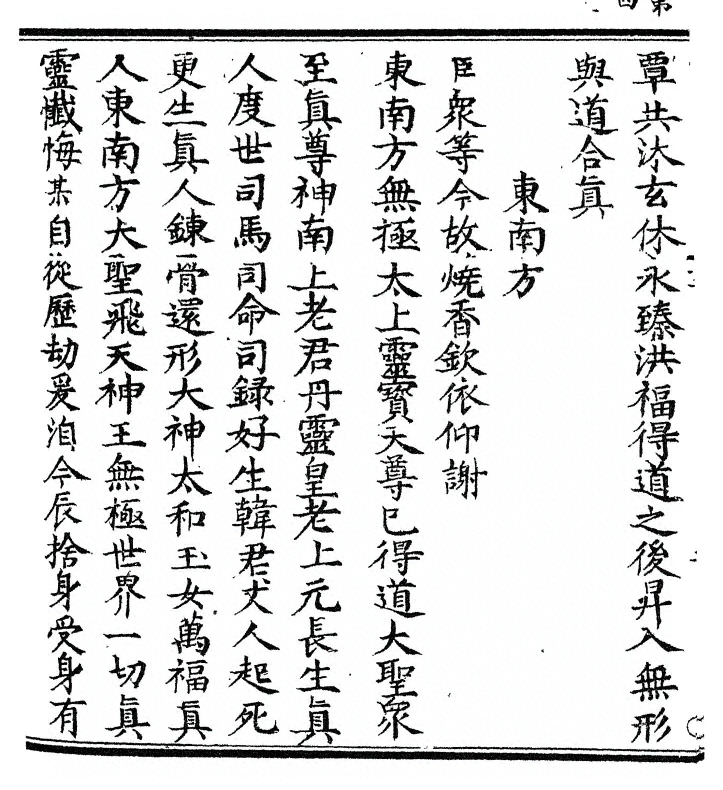 覃共沐玄休永臻洪福得道之後昇入無形
與道合眞
東南方
臣衆等今故燒香欽依仰謝
東南方無極太上靈寳天尊已得道大聖衆
至眞尊神南上老君丹靈皇老上元長生眞
人度世司馬司命司録好生韓君丈人起死
更生眞人錬骨還形大神太和玉女萬福眞
人東南方大聖飛天神王無極世界一切眞
靈懺悔某自從歷劫爰洎今辰捨身受身有